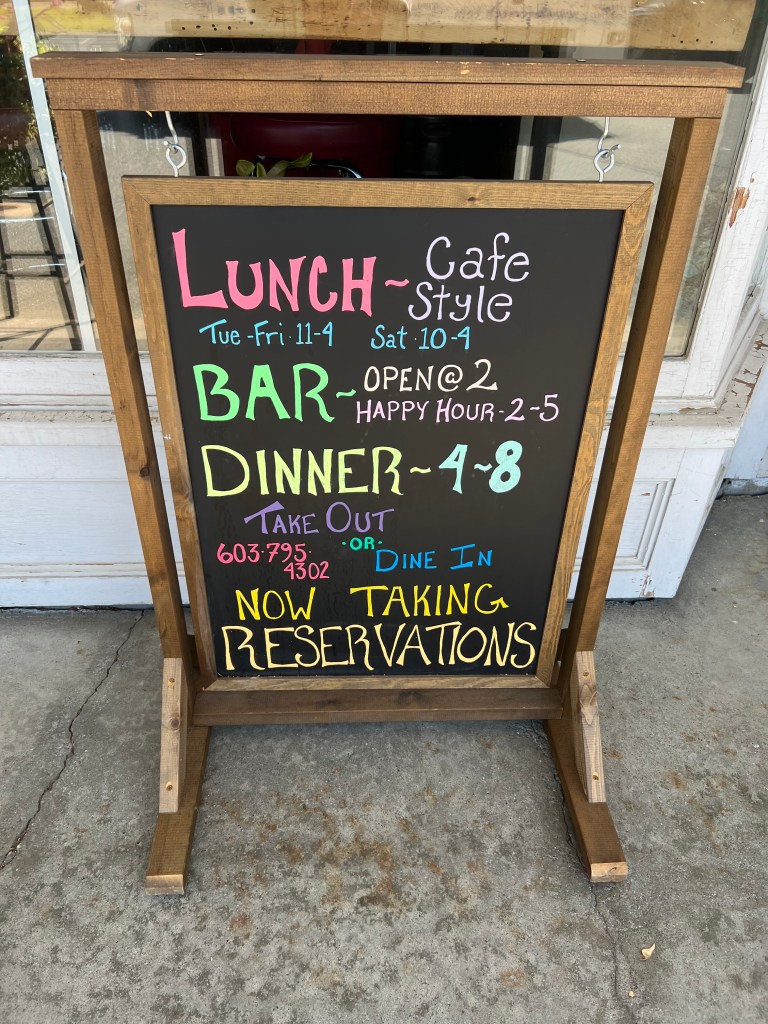 LUNCH~ Cafe Style
Tue-Fri·11-4 Sat·10-4
BAR~ OPEN@2
HAPPY HOUR-2-5
DINNER~4~8
TAKE OUT
·OR·
603·795· DINE IN
4302
NOW TAKING
RESERVATIONS